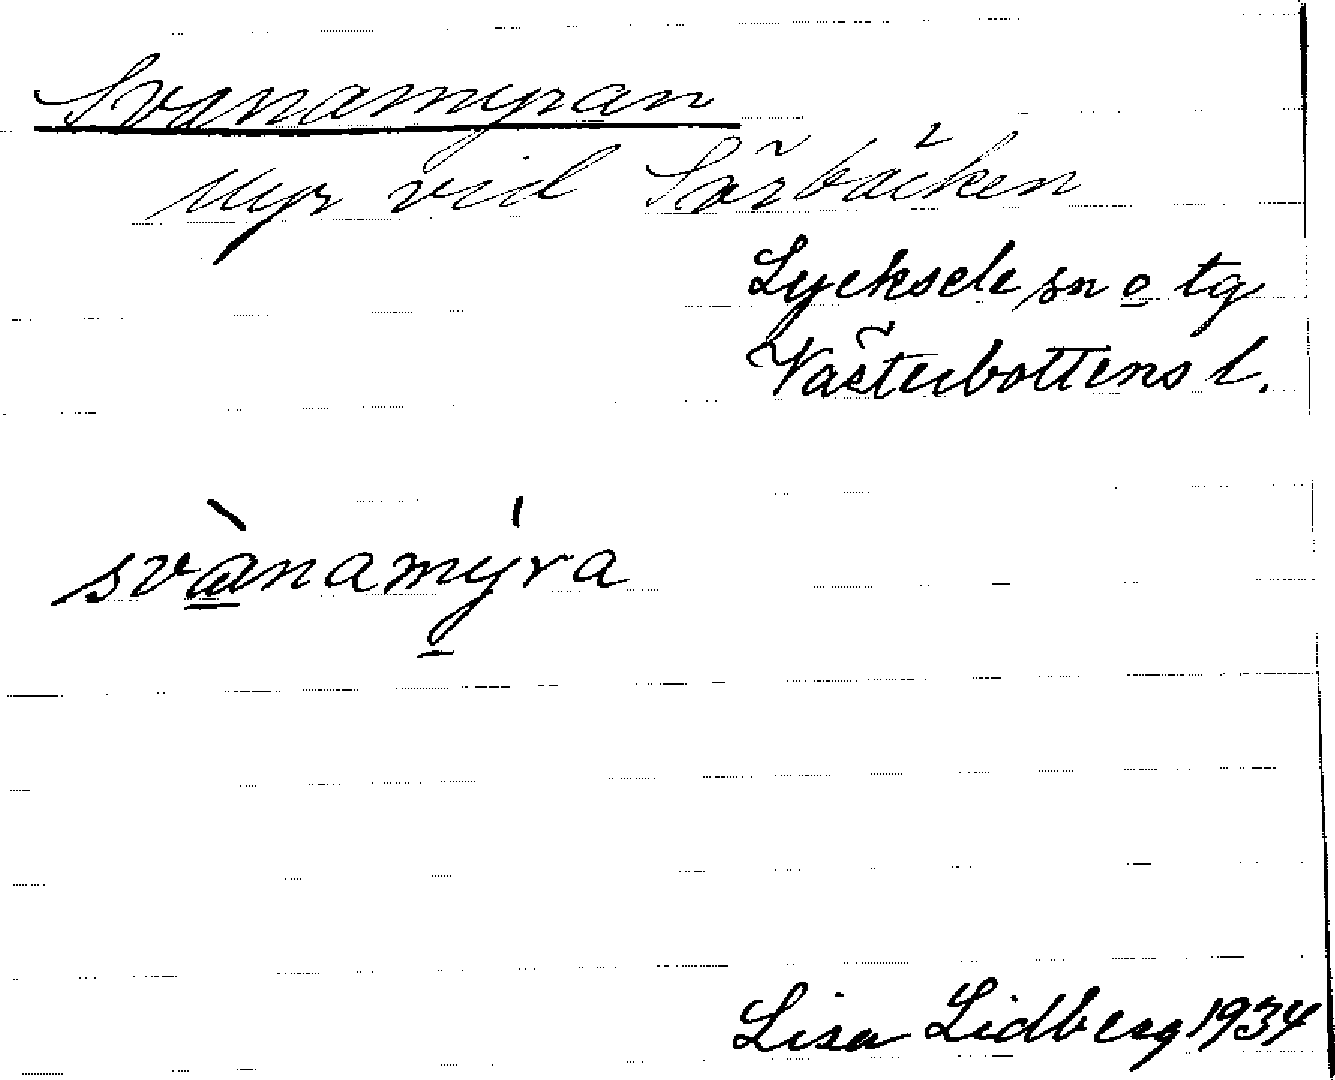 Svanamyran
Myr vid Sörbäcken
Lycksele sn o tg
Västerbottens l.
svànamýra
Lisa Lidberg 1934